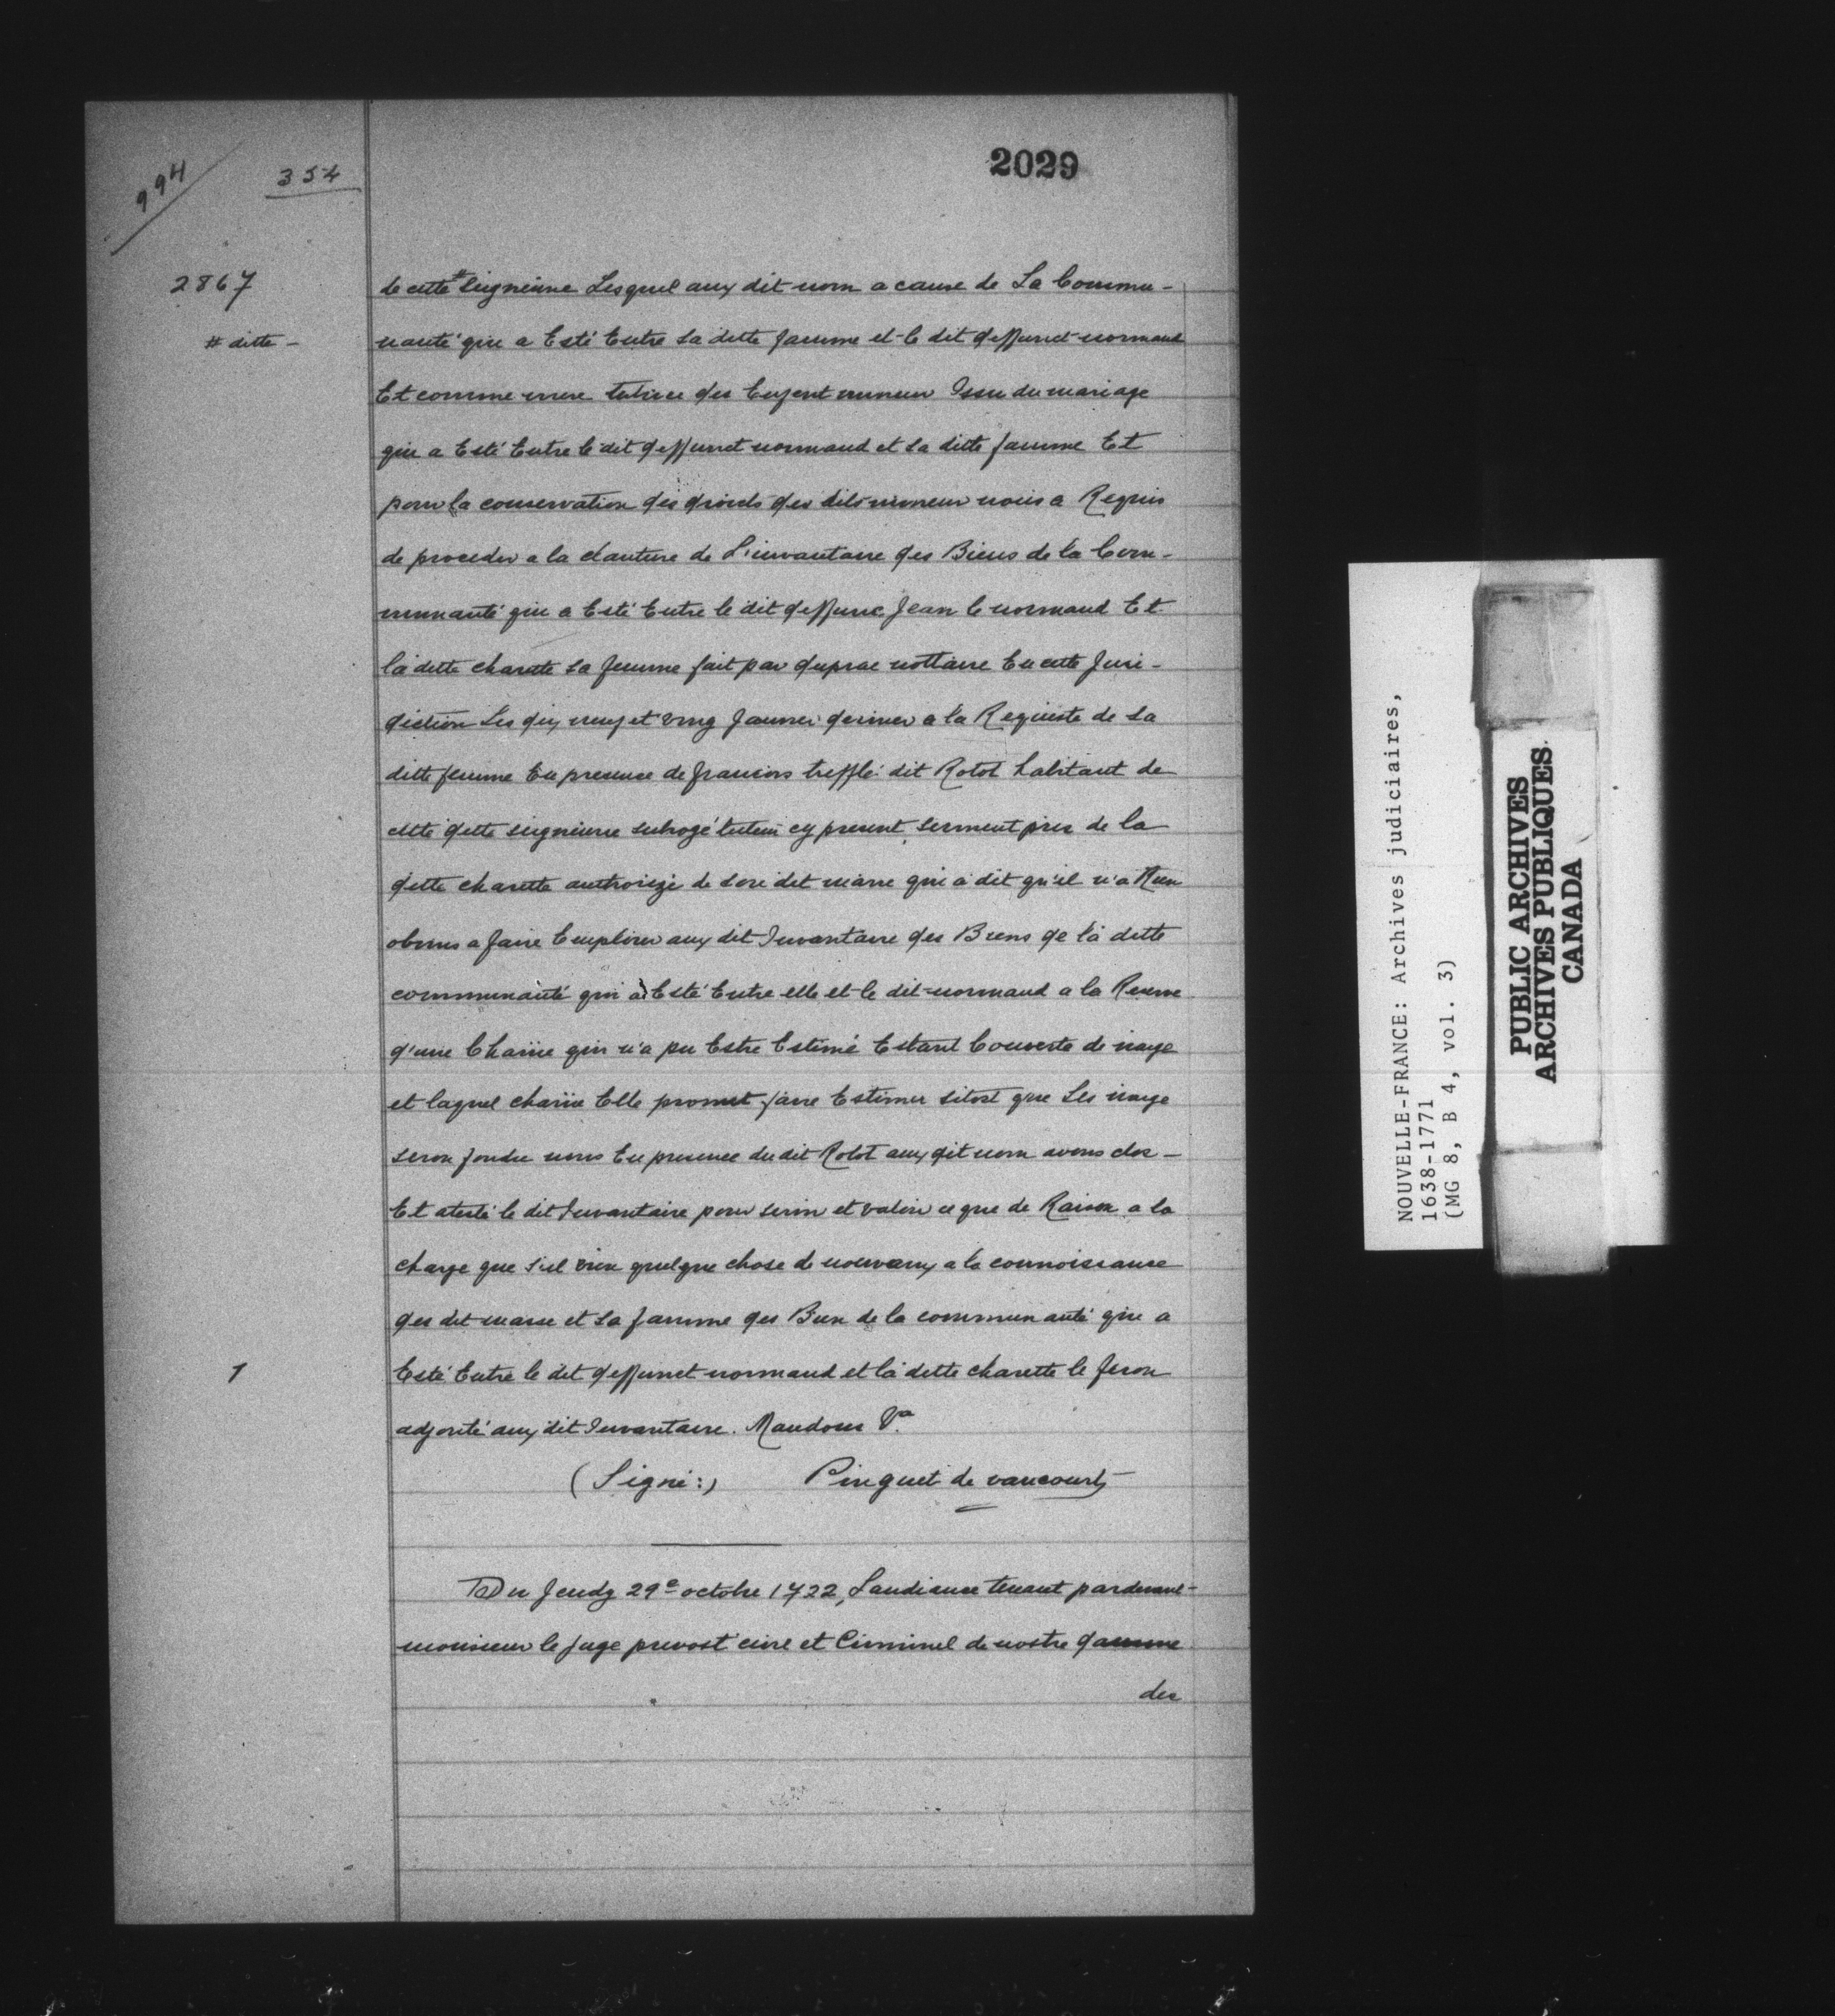 994
354
2029
2867
# ditte -
de cette # Seigneurie Lesquel aux dit nom a cause de La Commu-
nauté qui a Esté Entre sa ditte famme et le dit deffunct normand
Et comme mere tutrice des Enfent mineur Issu du mariage
qui a Esté Entre le dit deffunct normand et sa ditte famme Et
pour la conservation des droicts des dits mineur nous a Requis
de proceder a la clauture de L'invantaire des Biens de la Com-
munauté qui a Esté Entre le dit deffunc Jean le normand Et
la ditte charete sa femme fait par duprac nottaire En cette Juri-
diction Les dix neuf et ving Janvier dernier a la Requeste de sa
ditte femme En presence de francois trefflé dit Rotot habitant de
cette ditte seigneurie subrogé tuteur cy present, serment pris de la
ditte charette authorizé de son dit marie qui a dit qu'il n'a Rien
obmis a faire Emploier aux dit Invantaire des Biens de la ditte
communauté qui a Esté Entre elle et le dit normand a la Reserve
d'une Charüe qui n'a pu Estre Estimé Estant Couverte de naige
et laquel charüe Elle promet faire Estimer sitost que Les naige
seron fondu nous En presence du dit Rotot aux dit nom avons clos -
Et atesté le dit Invantaire pour servir et valoir ce que de Raison a la
charge que s'il vien quelque chose de nouvaux a la connoissance
des dit marie et sa famme des Bien de la communauté qui a
1
Esté Entre le dit deffunct normand et la ditte charette le feron
adjouté aux dit Invantaire. Mandons &a.
(Signé:) Pinguet de vaucourt
Du Jeudy 29e octobre 1722, Laudiance tenant pardevant
monsieur le juge prevost civil et Criminel de nostre damme
des
NOUVELLE-FRANCE: Archives judiciaires,
1638-1771
(MG 8, B 4, vol. 3)
PUBLIC ARCHIVES
ARCHIVES PUBLIQUES
CANADA